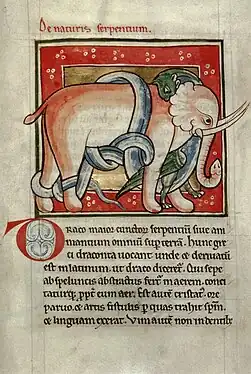 De naturis serpentium.
Draco maior cunctor serpentiū siue ani
mantium omniū sup terrā. Hunc gre
ci draconta uocant unde et deriuatū
est in latinum. ut draco dicer̄. Qui sepe
ab speluncis abstractus fert̄ in aerem. conci
taturq; ppt̄ eum aer. Est autē cristat᷒. ore
paruo. et artis fistulis p quas trahit spm̄.
et linguam exerat. Vim autē non in dentib᷒